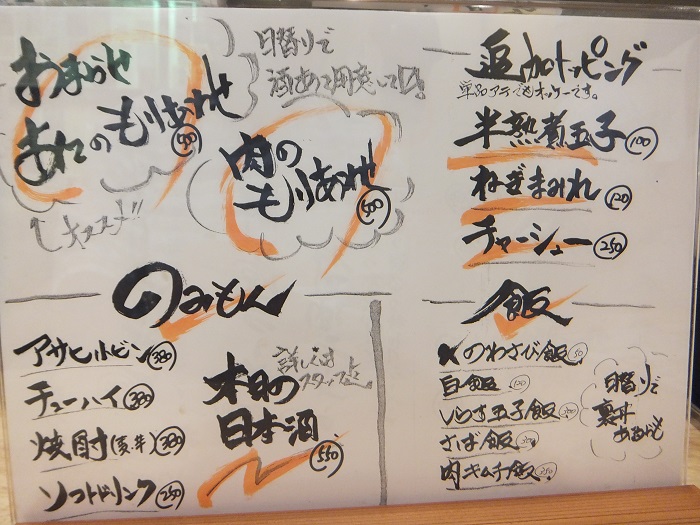 おまかせ
あれの もりあわせ
500
オススメ!!
日替りで
酒あて用意して〼!
肉の
もりあわせ
500
追加トッピング
単品アテでもオッケーです。
半熟煮玉子 100
ねぎまみれ 120
チャーシュー 250
のみもん
アサヒ小ビン 380
チューハイ 380
焼酎(麦・芋) 380
ソフトドリンク 250
本日の
日本酒
550
詳しくは
スタッフまで
飯
のわさび飯 50
白飯 100
しらす玉子飯 300
さば飯 300
肉キムチ飯 350
日替りで
裏丼
あるかも